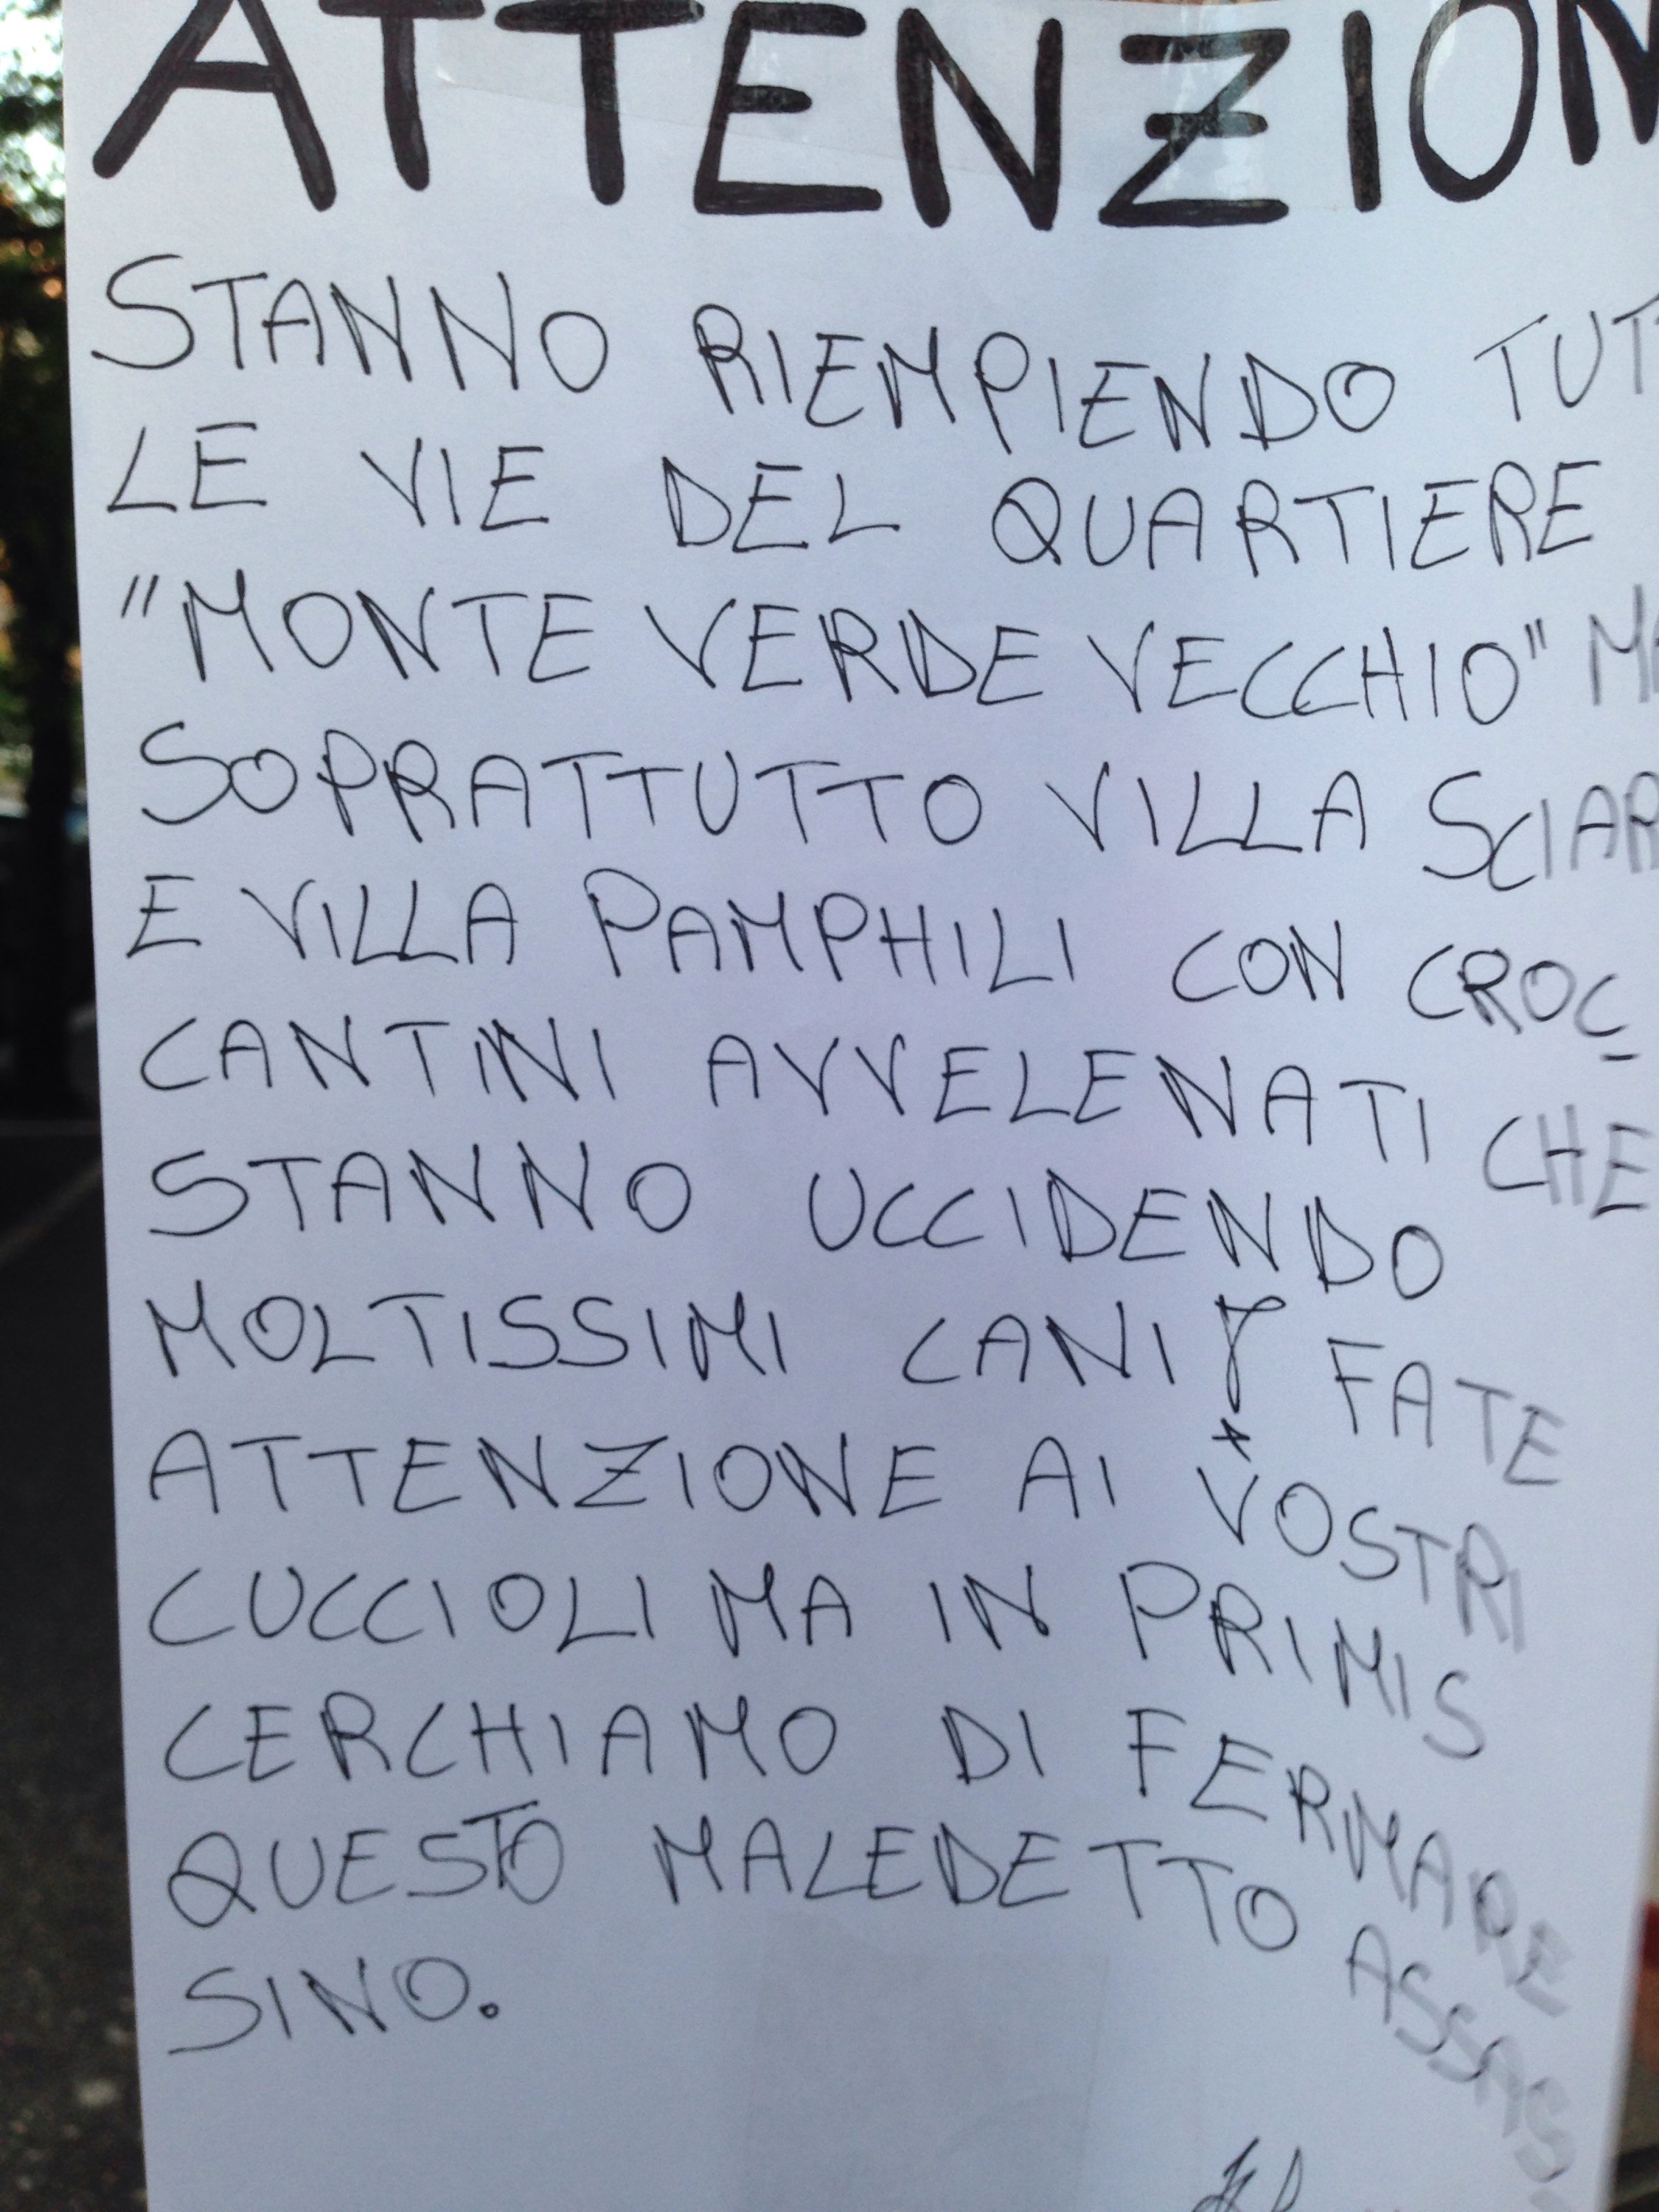 ATTENZION
STANNO RIEMPIENDO TUT
LE VIE DEL QUARTIERE
"MONTE VERDE VECCHIO" MA
SOPRATTUTTO VILLA SCIAR
E VILLA PAMPHILI CON CROC
CANTINI AVVELENATI CHE
STANNO UCCIDENDO
MOLTISSIMI CANI FATE
ATTENZIONE AI VOSTRI
CUCCIOLI MA IN PRIMIS
CERCHIAMO DI FERMARE
QUESTO MALEDETTO ASSAS
SINO.